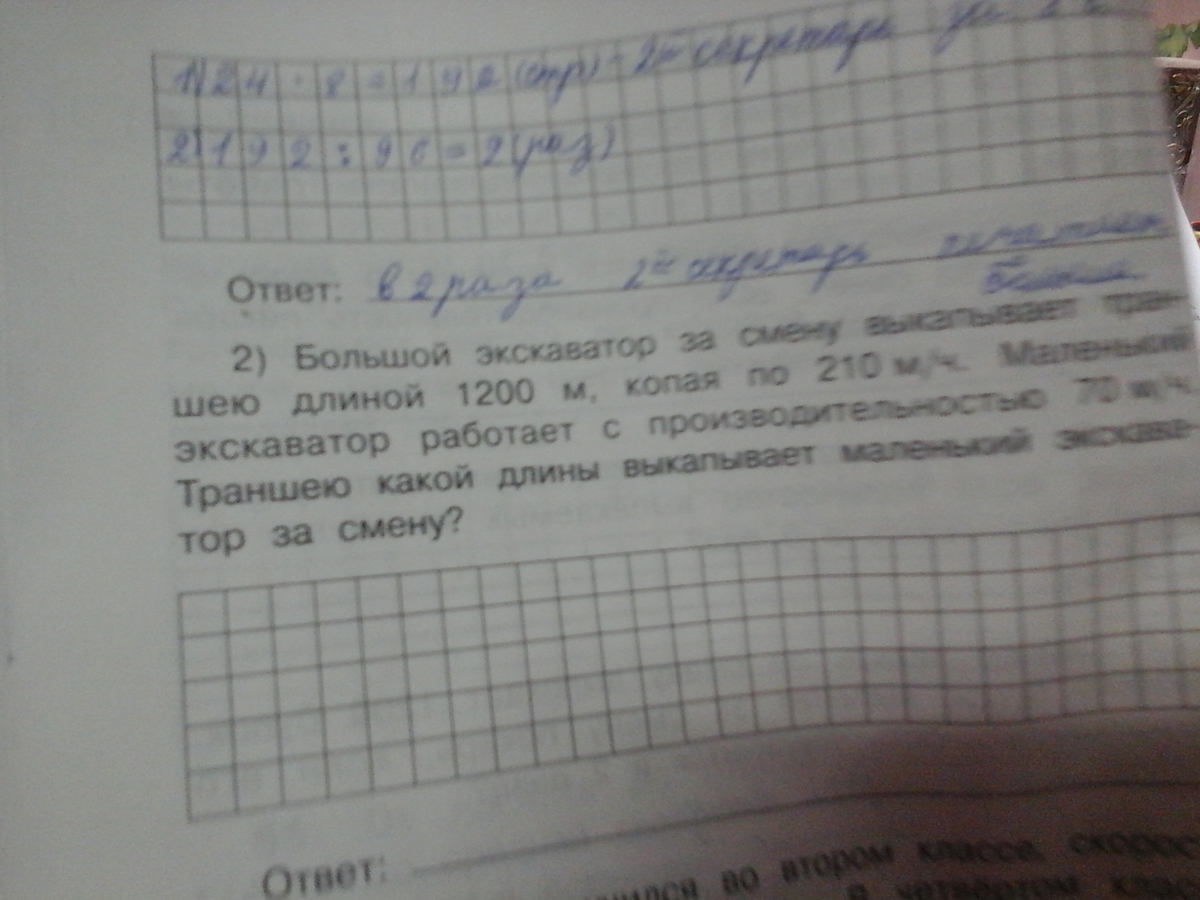 1) 24 · 8 = 192 (стр) - 2й секретарь за
2) 192 : 96 = 2 (раз)
Ответ: в 2 раза 2й секретарь печатает
больше
2) Большой экскаватор за смену выкапывает тран-
шею длиной 1200 м, копая по 210 м/ч. Маленький
экскаватор работает с производительностью 70 м/ч.
Траншею какой длины выкапывает маленький экскава-
тор за смену?
Ответ:
во втором классе, скорос
в четвёртом клас